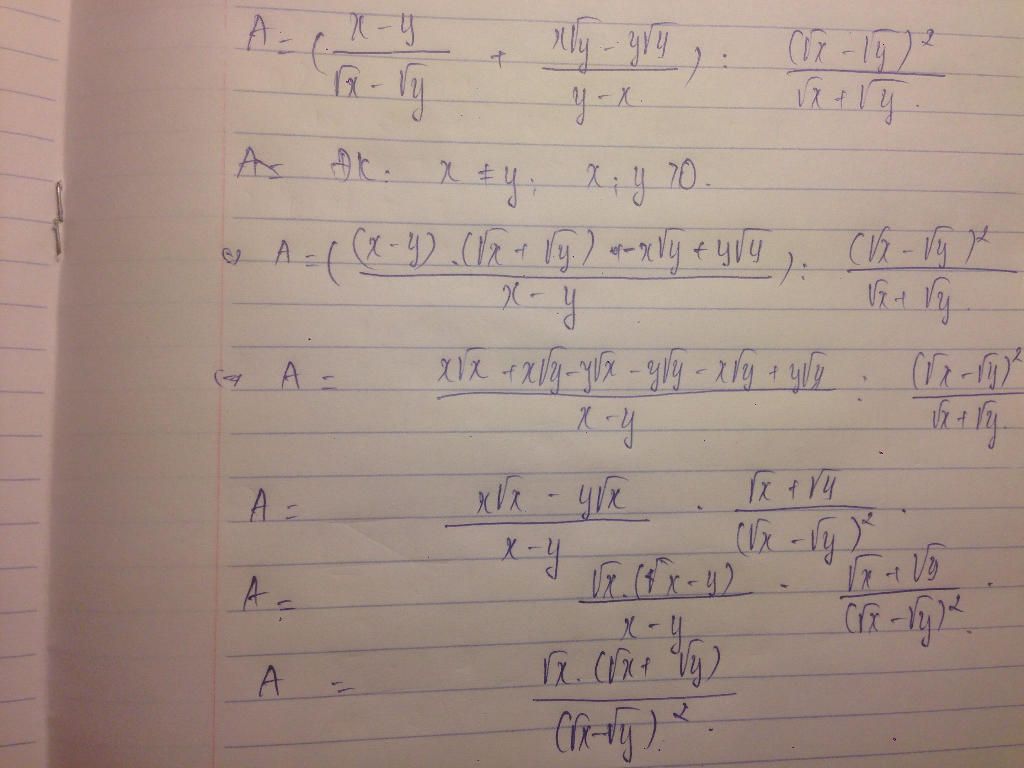 A = (\frac{x-y}{\sqrt{x}-\sqrt{y}} + \frac{x\sqrt{y}-y\sqrt{y}}{y-x}) : \frac{(\sqrt{x}-\sqrt{y})^2}{\sqrt{x}+\sqrt{y}}.
A ĐK: x ≠ y; x; y > 0.
⇔ A = (\frac{(x-y).(\sqrt{x}+\sqrt{y})-x\sqrt{y}+y\sqrt{y}}{x-y}) : \frac{(\sqrt{x}-\sqrt{y})^2}{\sqrt{x}+\sqrt{y}}.
⇔ A = \frac{x\sqrt{x}+x\sqrt{y}-y\sqrt{x}-y\sqrt{y}-x\sqrt{y}+y\sqrt{y}}{x-y} : \frac{(\sqrt{x}-\sqrt{y})^2}{\sqrt{x}+\sqrt{y}}.
A = \frac{x\sqrt{x}-y\sqrt{x}}{x-y} . \frac{\sqrt{x}+\sqrt{y}}{(\sqrt{x}-\sqrt{y})^2}.
A = \frac{\sqrt{x}.(x-y)}{x-y} . \frac{\sqrt{x}+\sqrt{y}}{(\sqrt{x}-\sqrt{y})^2}.
A = \frac{\sqrt{x}.(\sqrt{x}+\sqrt{y})}{(\sqrt{x}-\sqrt{y})^2}.